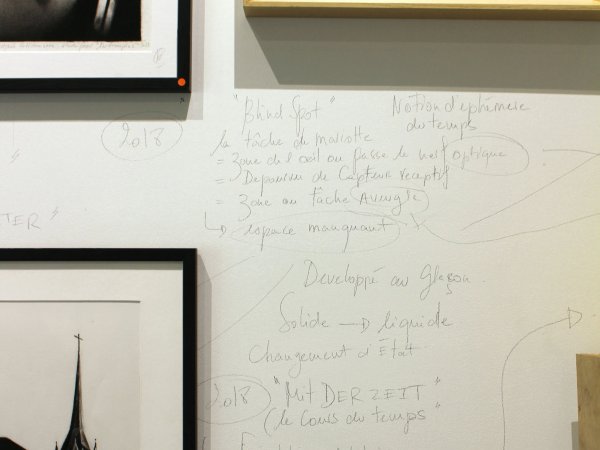 "Blind Spot"
Notion d'éphémere
du temps
2018
la tâche de mariotte
= zone de l'oeil ou passe le nerf optique
= Depourvu de Capteur receptif
= zone ou tâche Aveugle
espace manquant
TER"
Developpé au Glaçon.
Solide → liquide
Changement d'État
2018 "Mit DER ZEIT"
(le Cours du temps"